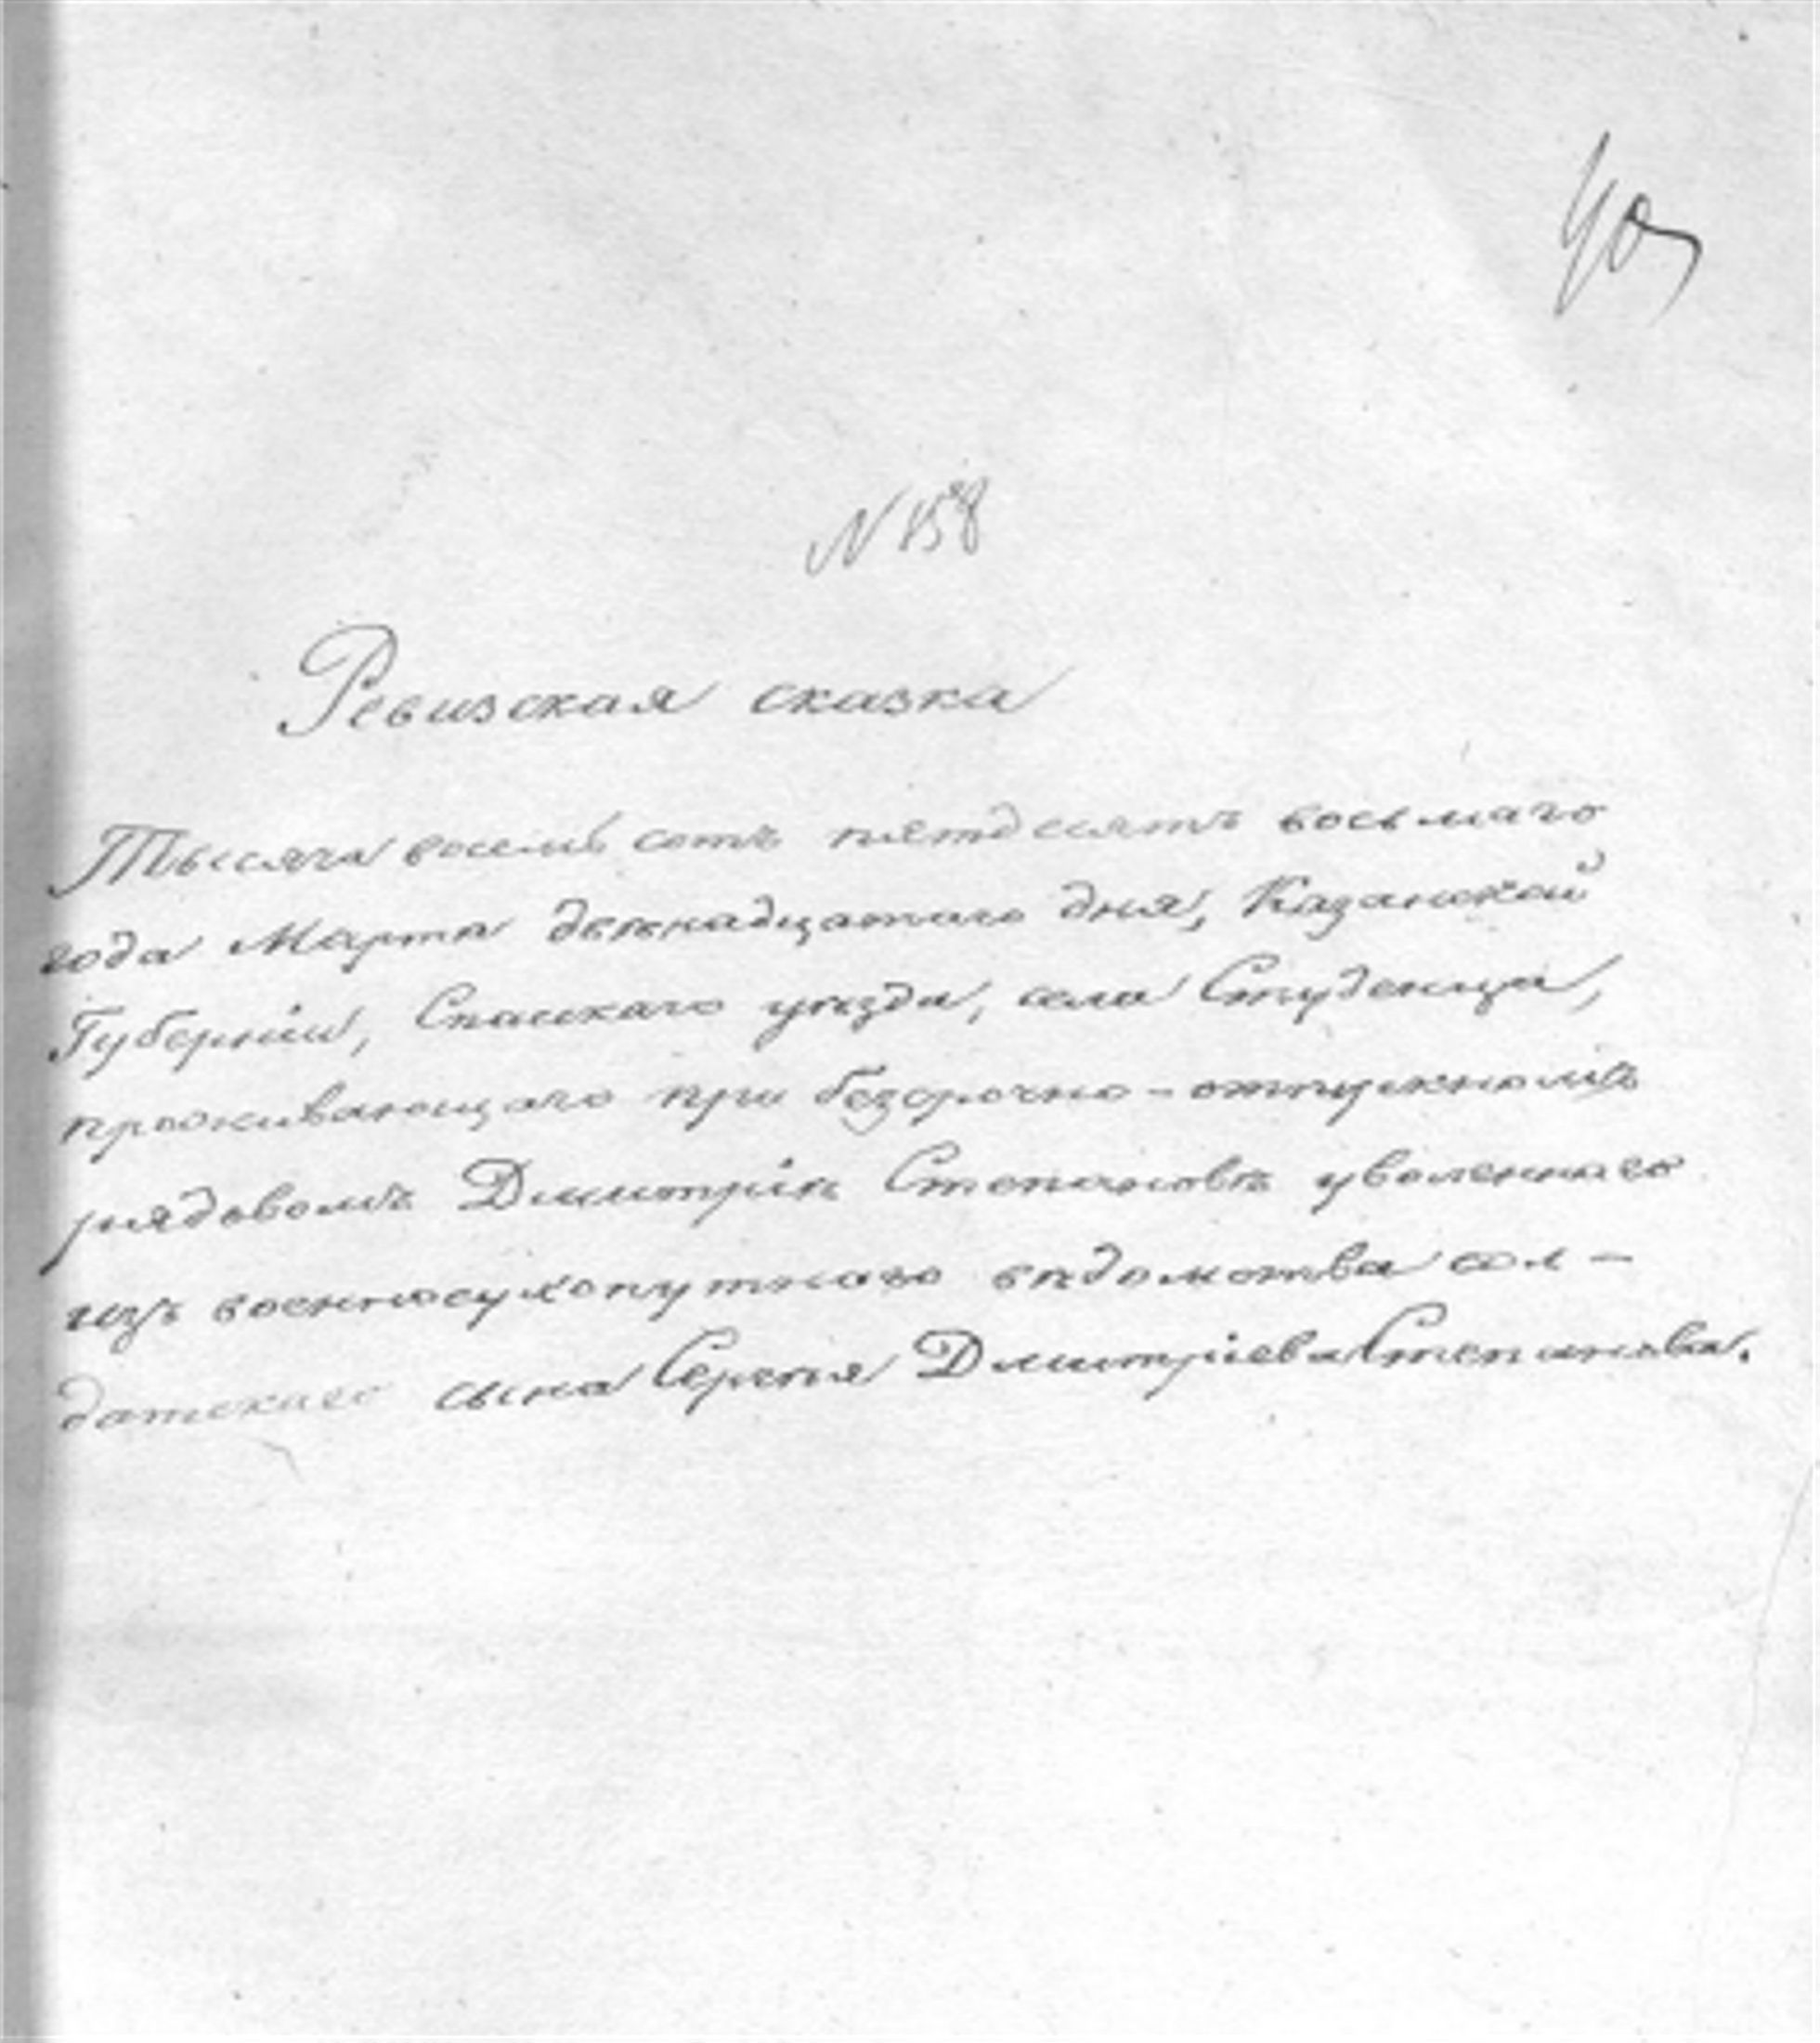 40
N 158
Ревизская сказка
Тысяча восемь сотъ пятдесятъ восьмаго
года Марта двенадцатаго дня, Казанской
Губерніи, Спаскаго уѣзда, села Студенца,
проживающаго при безсрочно-отпускномъ
рядовомъ Дмитріѣ Степановѣ уволеннаго
изъ военносухопутнаго вѣдомства сол-
датскаго сына Сергѣя Дмитріева Степанова.